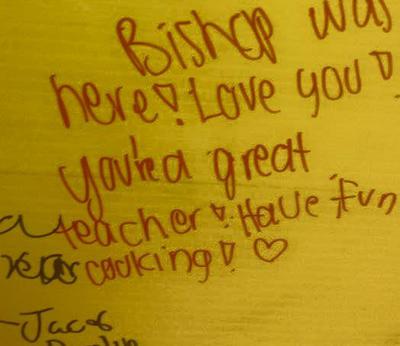 Bishop was
here! Love you!
you're a great
teacher! Have fun
cooking! ♡
a
- Jacob